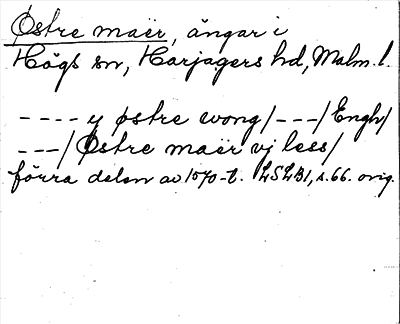 Østre maër, ängar i
Högs sn, Harjagers hd, Malm.l.
---- y østre wong/---/Engh/
---/Østre maër vj less/
förra delen av 1570-t. LSLB1, s.66. orig.